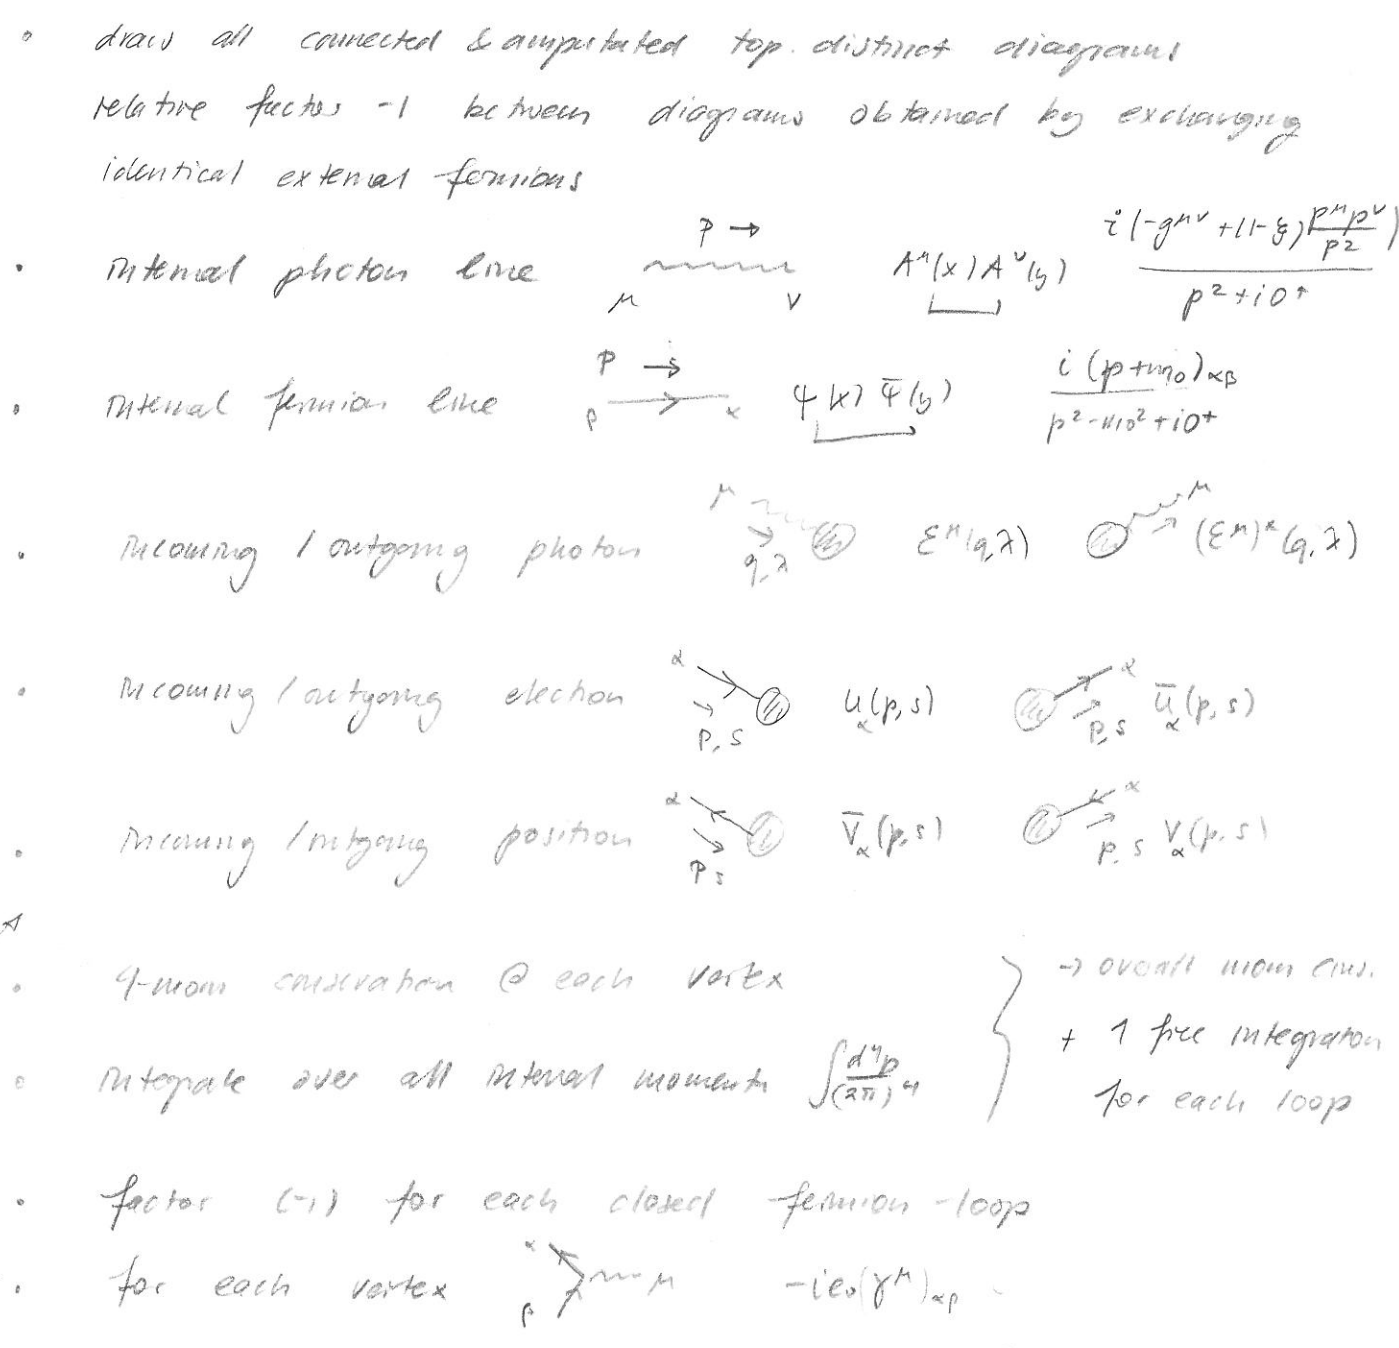 draw all connected & amputated top. distinct diagrams
relative factor -1 between diagrams obtained by exchanging
identical external fermions
internal photon line p → μ ν A^μ(x) A^ν(y) i(-g^{μν} + (1-ξ) p^μ p^ν / p²) / (p² + i0⁺)
internal fermion line p → β α ψ(x) ψ̄(y) i(p̸ + m₀)_{αβ} / (p² - m₀² + i0⁺)
incoming / outgoing photon μ q,λ ε^μ(q,λ) μ (ε^μ)*(q,λ)
incoming / outgoing electron α p,s u_α(p,s) α p,s ū_α(p,s)
incoming / outgoing positron α p s v̄_α(p,s) α p,s v_α(p,s)
4-mom conservation @ each vertex → overall mom cons.
integrate over all internal momenta ∫ d⁴p / (2π)⁴ + 1 free integration
for each loop
factor (-1) for each closed fermion-loop
for each vertex α β μ -ie₀(γ^μ)_{αβ}